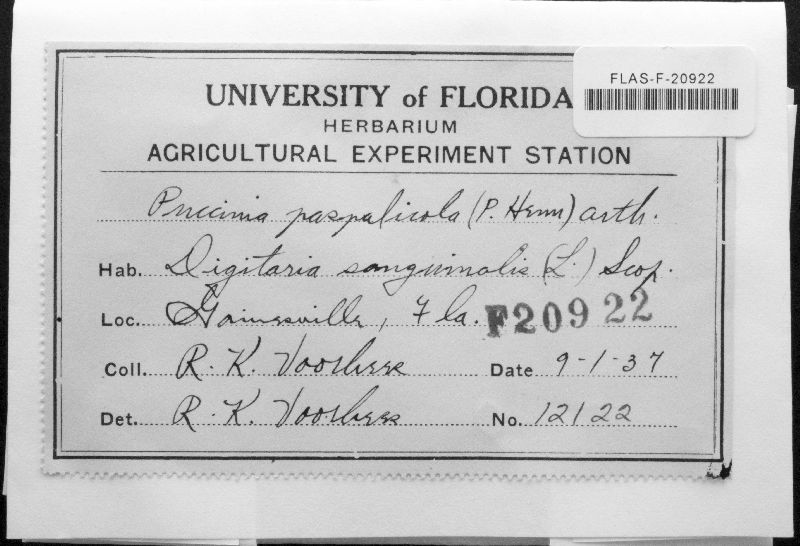 FLAS-F-20922
UNIVERSITY of FLORIDA
HERBARIUM
AGRICULTURAL EXPERIMENT STATION
Puccinia paspalicola (P. Henn) arth.
Hab. Digitaria sanguinalis (L.) Scop.
Loc. Gainesville, Fla. F20922
Coll. R. K. Voorhees Date 9-1-37
Det. R. K. Voorhees No. 12122